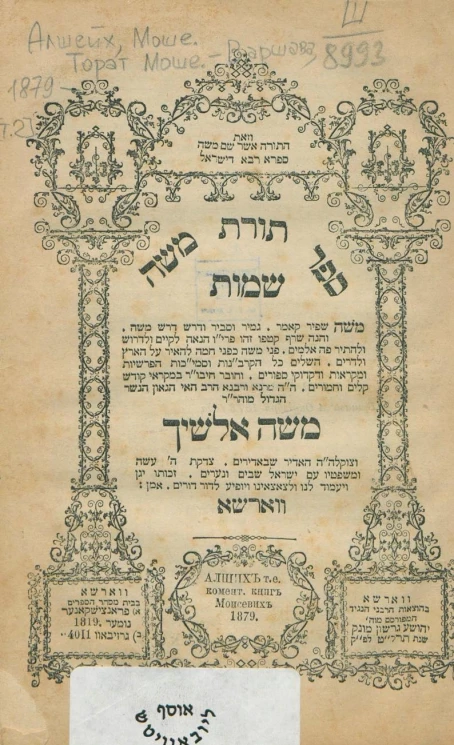 Алшейх, Моше.
Торат Моше. — Варшава,
1879
Ш
8993
וזאת
התורה אשר שם משה
ספרא רבא דישראל
ספר
תורת
משה
שמות
משה שפיר קאמר . גמיר וסביר ודרש דרש משה .
והנה שרף קטפו זהו פרי"ו הנאה לקיים ולדרוש
ולהתיר פה אלמים . פני משה כפני חמה להאיר על הארץ
ולדרים . השלים כל הקרבנות וסמיכות הפרשיות
ומקראות ודקדוקי ספורים . וחובר חיבו"ר במקראי קודש
קלים וחמורים . ה"ה מרנא ורבנא הרב האי הגאון הנשר
הגדול מוהר"ר
משה אלשיך
וצוקלה"ה האדיר שבאדירים . צדקת ה' עשה
ומשפטיו עם ישראל שבים ונערים . זכותו יגן
ויעמוד לנו ולצאצאינו ויופיע לדור דורים . אמן :
ווארשא
АЛШИХЪ т.е.
комент. книгъ
Моисевихъ
1879.
ווארשא
בהוצאות הרבני הנגיד
המפורסם מוה'
יהושע גרשון מונק
שנת תרל"ט לפ"ק
ווארשא
בבית מסחר הספרים
א) פראנצישקאנער
נומער 1819.
ב) גרזיבאוו 1104
אוסף
ליובאוויטש